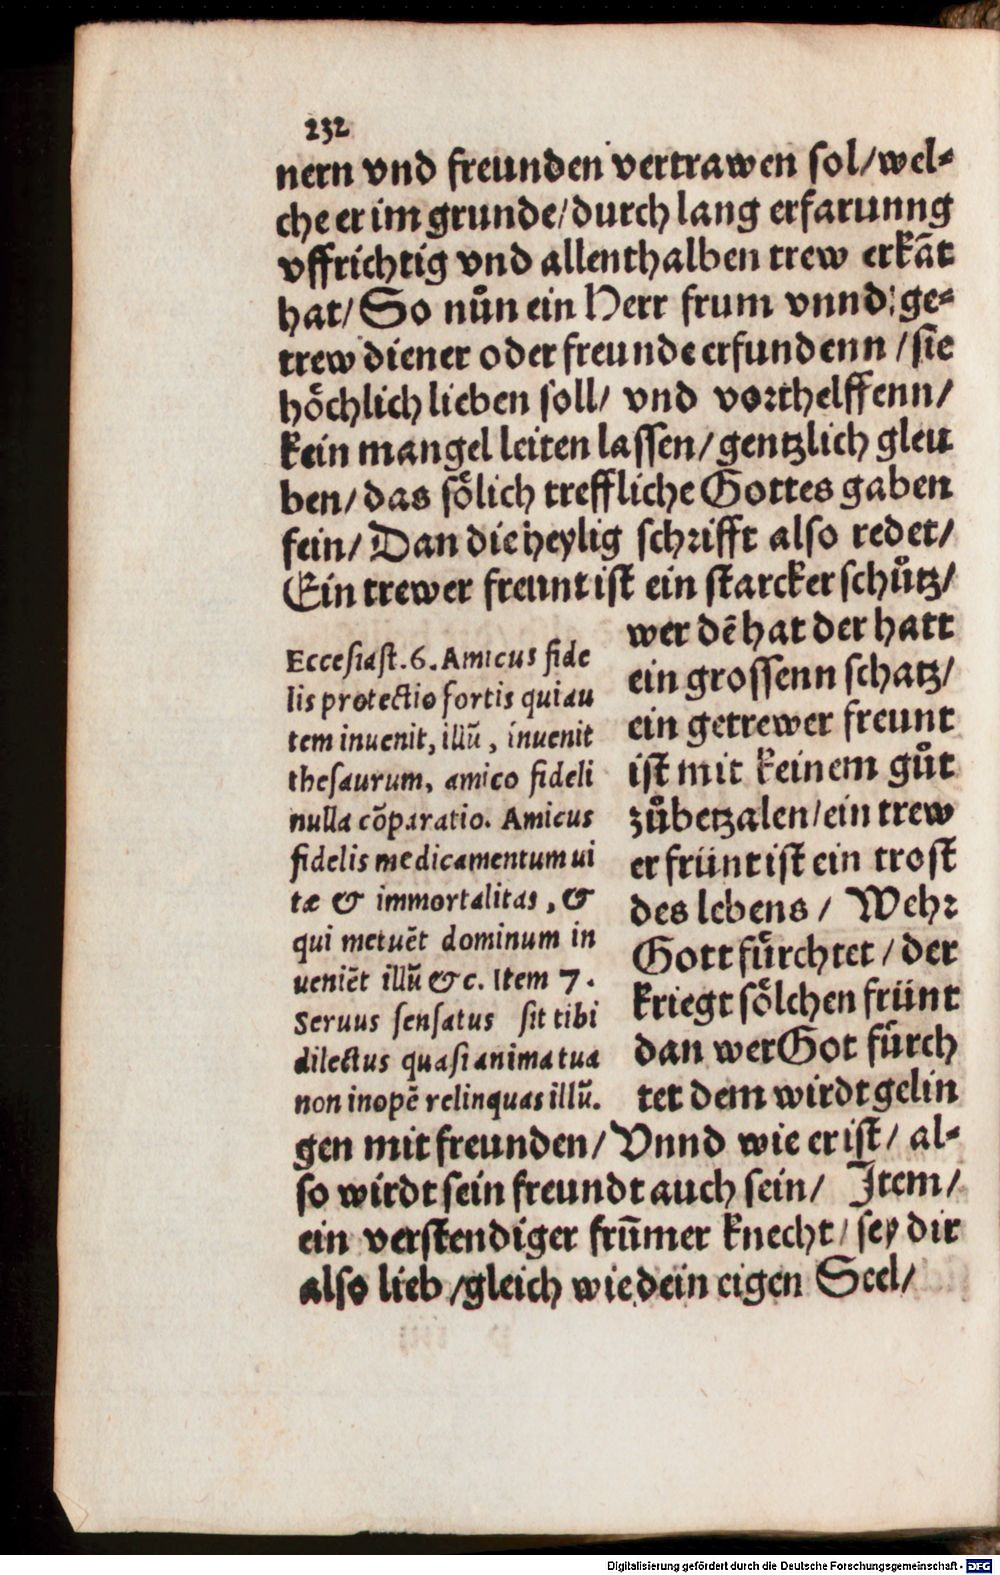 232
nern vnd freunden vertrawen sol/wel⸗
che er im grunde/durch lang erfarunng
vffrichtig vnd allenthalben trew erkāt
hat/ So nůn ein Herr frum vnnd ge⸗
trew diener oder freunde erfundenn /sie
hôchlich lieben soll/ vnd vorthelffenn/
kein mangel leiten lassen/gentzlich gleu
ben/ das sôlich treffliche Gottes gaben
sein/ Dan die heylig schrifft also redet/
Ein trewer freunt ist ein starcker schůtz/
wer dē hat der hatt
ein grossenn schatz/
ein getrewer freunt
ist mit keinem gůt
zůbetzalen/ein trew
er früntist ein trost
des lebens / Wehr
Gott fürchtet / der
kriegt sôlchen früнt
dan wer Got fürch
tet dem wirdt gelin
Eccesiast.6. Amicus fide
lis protectio fortis qui au
tem inuenit, illū, inuenit
thesaurum, amico fideli
nulla cōparatio. Amicus
fidelis medicamentum ui
tæ & immortalitas, &
qui metuēt dominum in
ueniēt illū &c. Item 7.
Seruus sensatus sit tibi
dilectus quasi anima tua
non inopē relinquas illū.
gen mit freunden/ Vnnd wie er ist/ al⸗
so wirdt sein freundt auch sein/ Item/
ein verstendiger frūmer knecht/ sey dir
also lieb /gleich wie dein eigen Seel/
Digitalisierung gefördert durch die Deutsche Forschungsgemeinschaft - DFG